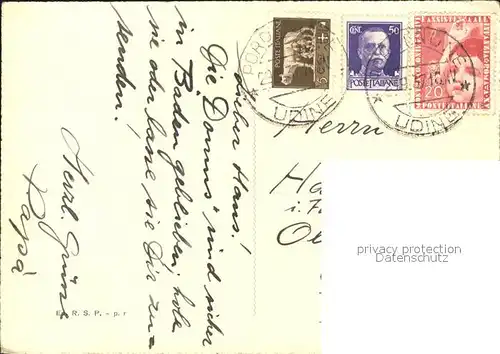 Lieber Hans!
Die "Domus" sind sicher
in Baden geblieben, hole
sie oder lasse sie Dir zu-
senden!
Herzl. Grüsse
Papà
E. R. S. P. - p. r
POSTE ITALIANE
CENT. 50
POSTE ITALIANE
20
POSTE ITALIANE
UDINE
UDINE
Herrn
Ha
i.
privacy protection
Datenschutz